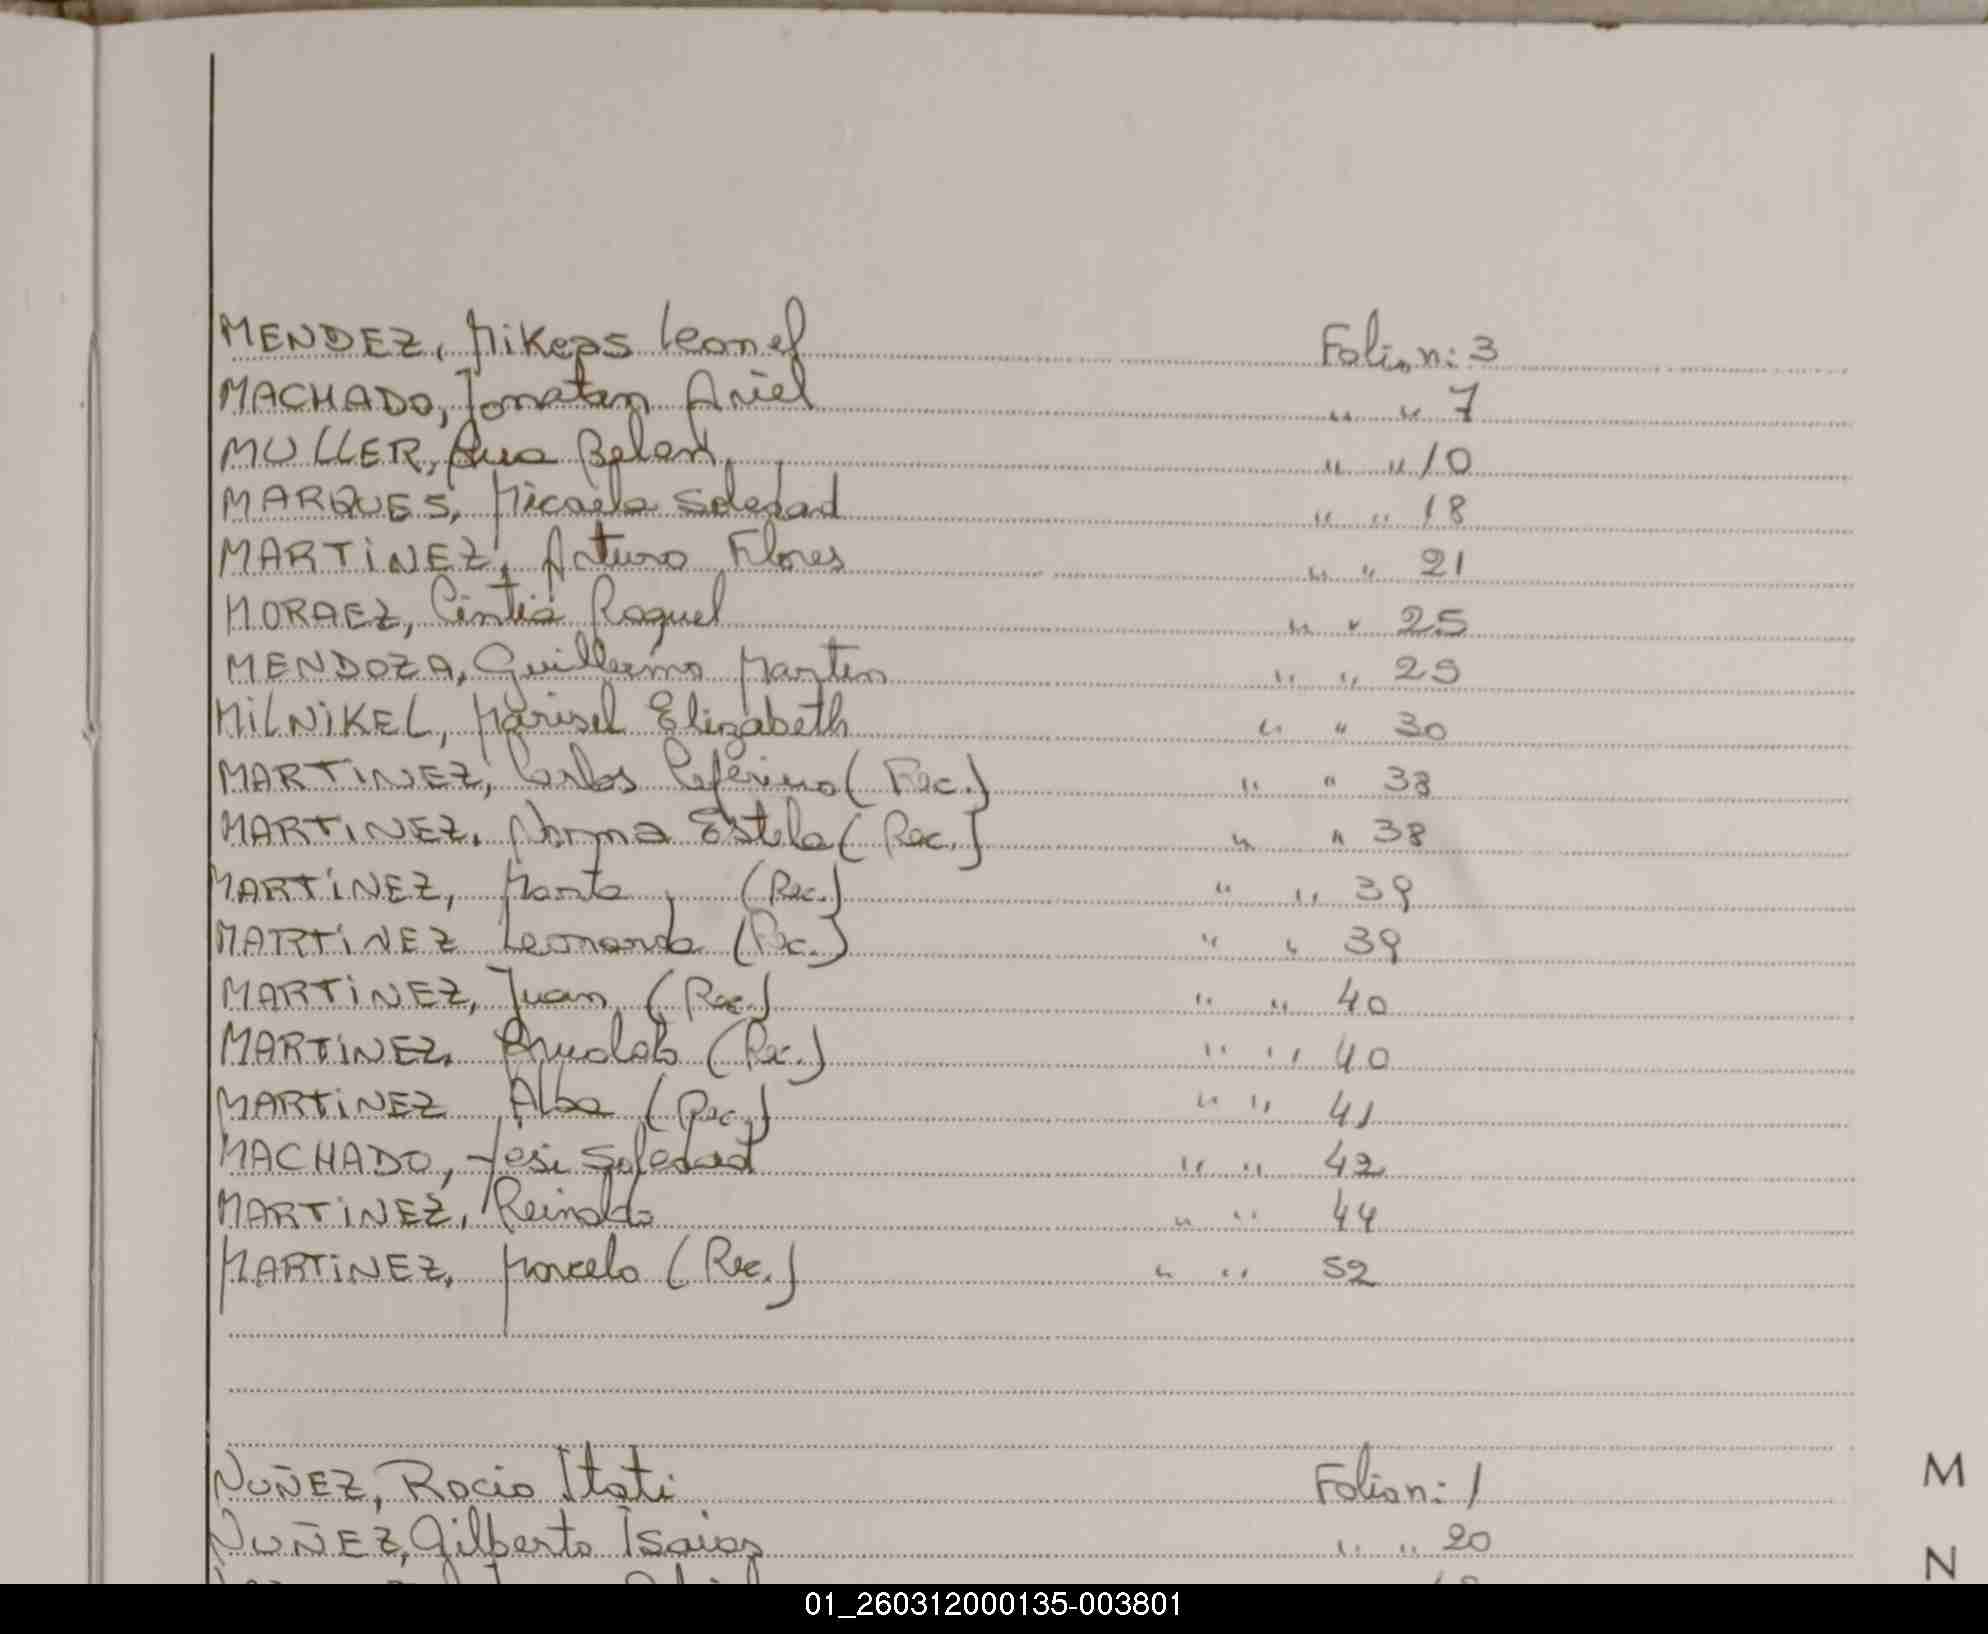 MENDEZ, Mikeas Leonel Folio n: 3
MACHADO, Jonatan Ariel " " 7
MULLER, Ana Belen " " 10
MARQUES, Micaela Soledad " " 18
MARTINEZ, Arturo Flores " " 21
MORAEZ, Cintia Raquel " " 25
MENDOZA, Guillermo Martin " " 29
MILNIKEL, Marisel Elizabeth " " 30
MARTINEZ, Carlos Ceferino (Rec.) " " 38
MARTINEZ, Norma Estela (Rec.) " " 38
MARTINEZ, Marta (Rec.) " " 39
MARTINEZ Leonarda (Rec.) " " 39
MARTINEZ, Juan (Rec.) " " 40
MARTINEZ, (Rec.) " " 40
MARTINEZ Alba (Rec.) " " 41
MACHADO, Yesi Soledad " " 42
MARTINEZ, Reinaldo " " 44
MARTINEZ, Marcelo (Rec.) " " 52
NUÑEZ, Rocio Itati Folio n: 1
M
NUÑEZ, Gilberto Isaias " " 20
N
01_260312000135-003801